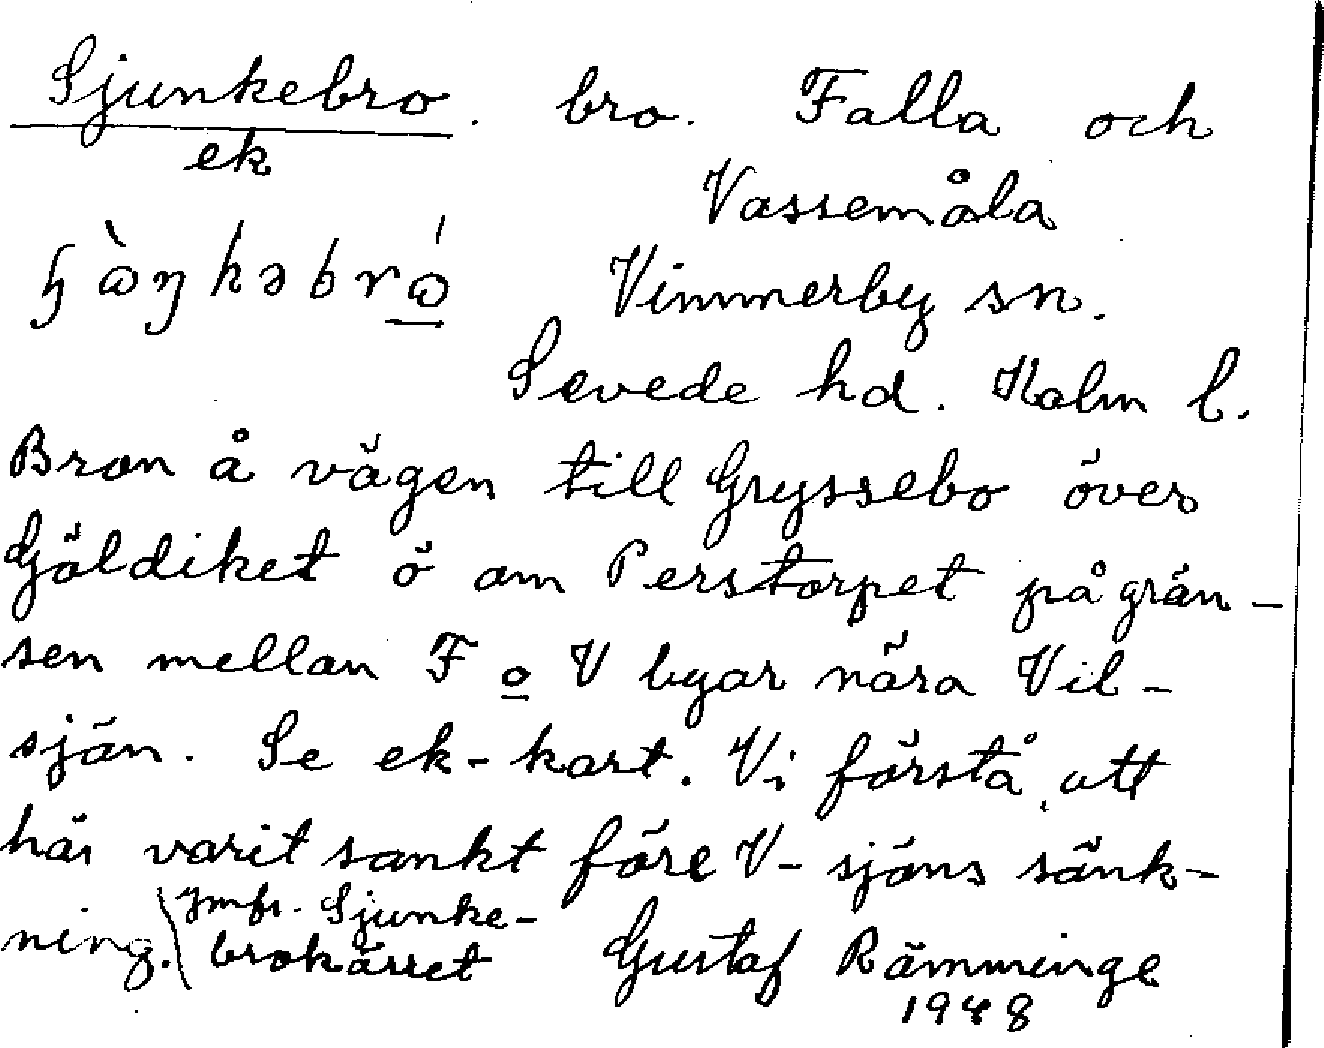 Sjunkebro. bro. Falla och
ek
Vassemåla
ɧɷ̀ŋkəbrɷ́ Vimmerby sn.
Sevede hd. Kalm l.
Bron å vägen till Gryssebo över
Göldiket ö om Perstorpet på grän-
sen mellan F o V byar nära Vil-
sjön. Se ek-kart. Vi förstå, att
här varit sankt före V-sjöns sänk-
ning. Jmfr. Sjunke-
brokärret Gustaf Rämminge
1948